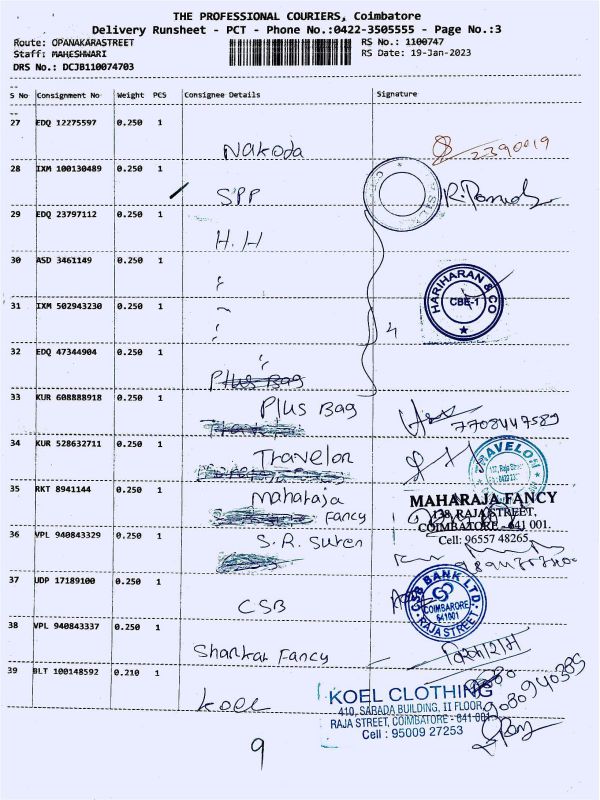 THE PROFESSIONAL COURIERS, Coimbatore
Delivery Runsheet - PCT - Phone No.:0422-3505555 - Page No.:3
Route: OPANAKARASTREET RS No.: 1100747
Staff: MAHESHWARI RS Date: 19-Jan-2023
DRS No.: DCJB110074703
S No Consignment No Weight PCS Consignee Details Signature
27 EDQ 12275597 0.250 1
Nakoda 2390019
28 IXM 100130489 0.250 1
SPP
29 EDQ 23797112 0.250 1
H.H
30 ASD 3461149 0.250 1
HARIHARAN & CO
CBE-1
31 IXM 502943230 0.250 1
4
32 EDQ 47344904 0.250 1
Plus Bag
33 KUR 608888918 0.250 1
Plus Bag 7708447589
34 KUR 528632711 0.250 1
Travelon
TRAVELON
35 RKT 8941144 0.250 1
Maharaja
Fancy
MAHARAJA FANCY
138, RAJA STREET,
COIMBATORE - 641 001.
Cell: 96557 48265
36 VPL 940843329 0.250 1
S.R. Suren
37 UDP 17189100 0.250 1
CSB
CSB BANK LTD.
COIMBATORE
641001
RAJA STREET
38 VPL 940843337 0.250 1
Shankar Fancy
39 BLT 100148592 0.210 1
Koel
9080940389
KOEL CLOTHING
410, SARADA BUILDING, II FLOOR,
RAJA STREET, COIMBATORE - 641 001.
Cell : 95009 27253
9